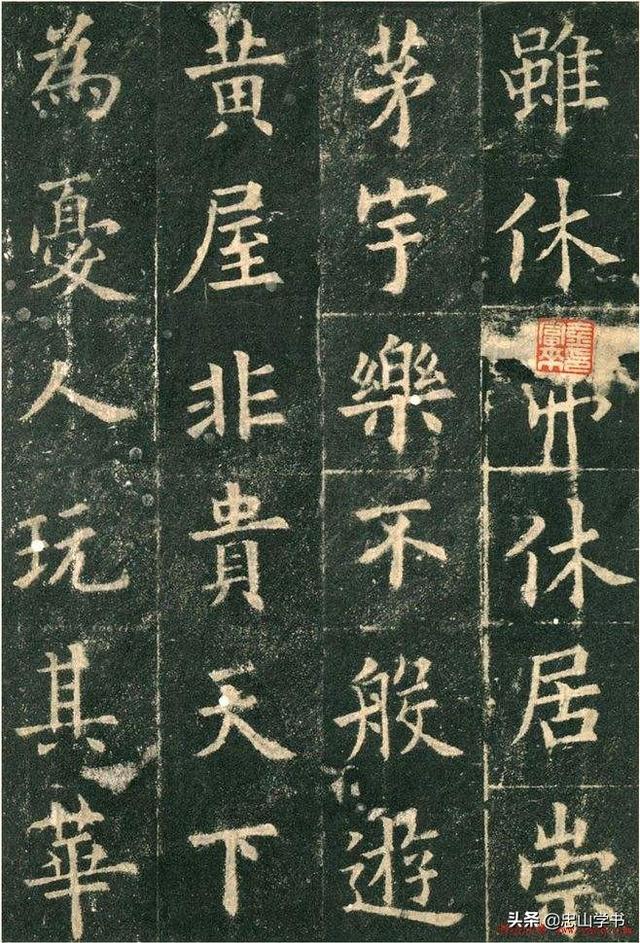 雖休休居崇
茅宇樂不般遊
黄屋非貴天下
為憂人玩其華
头条 @忠山学书